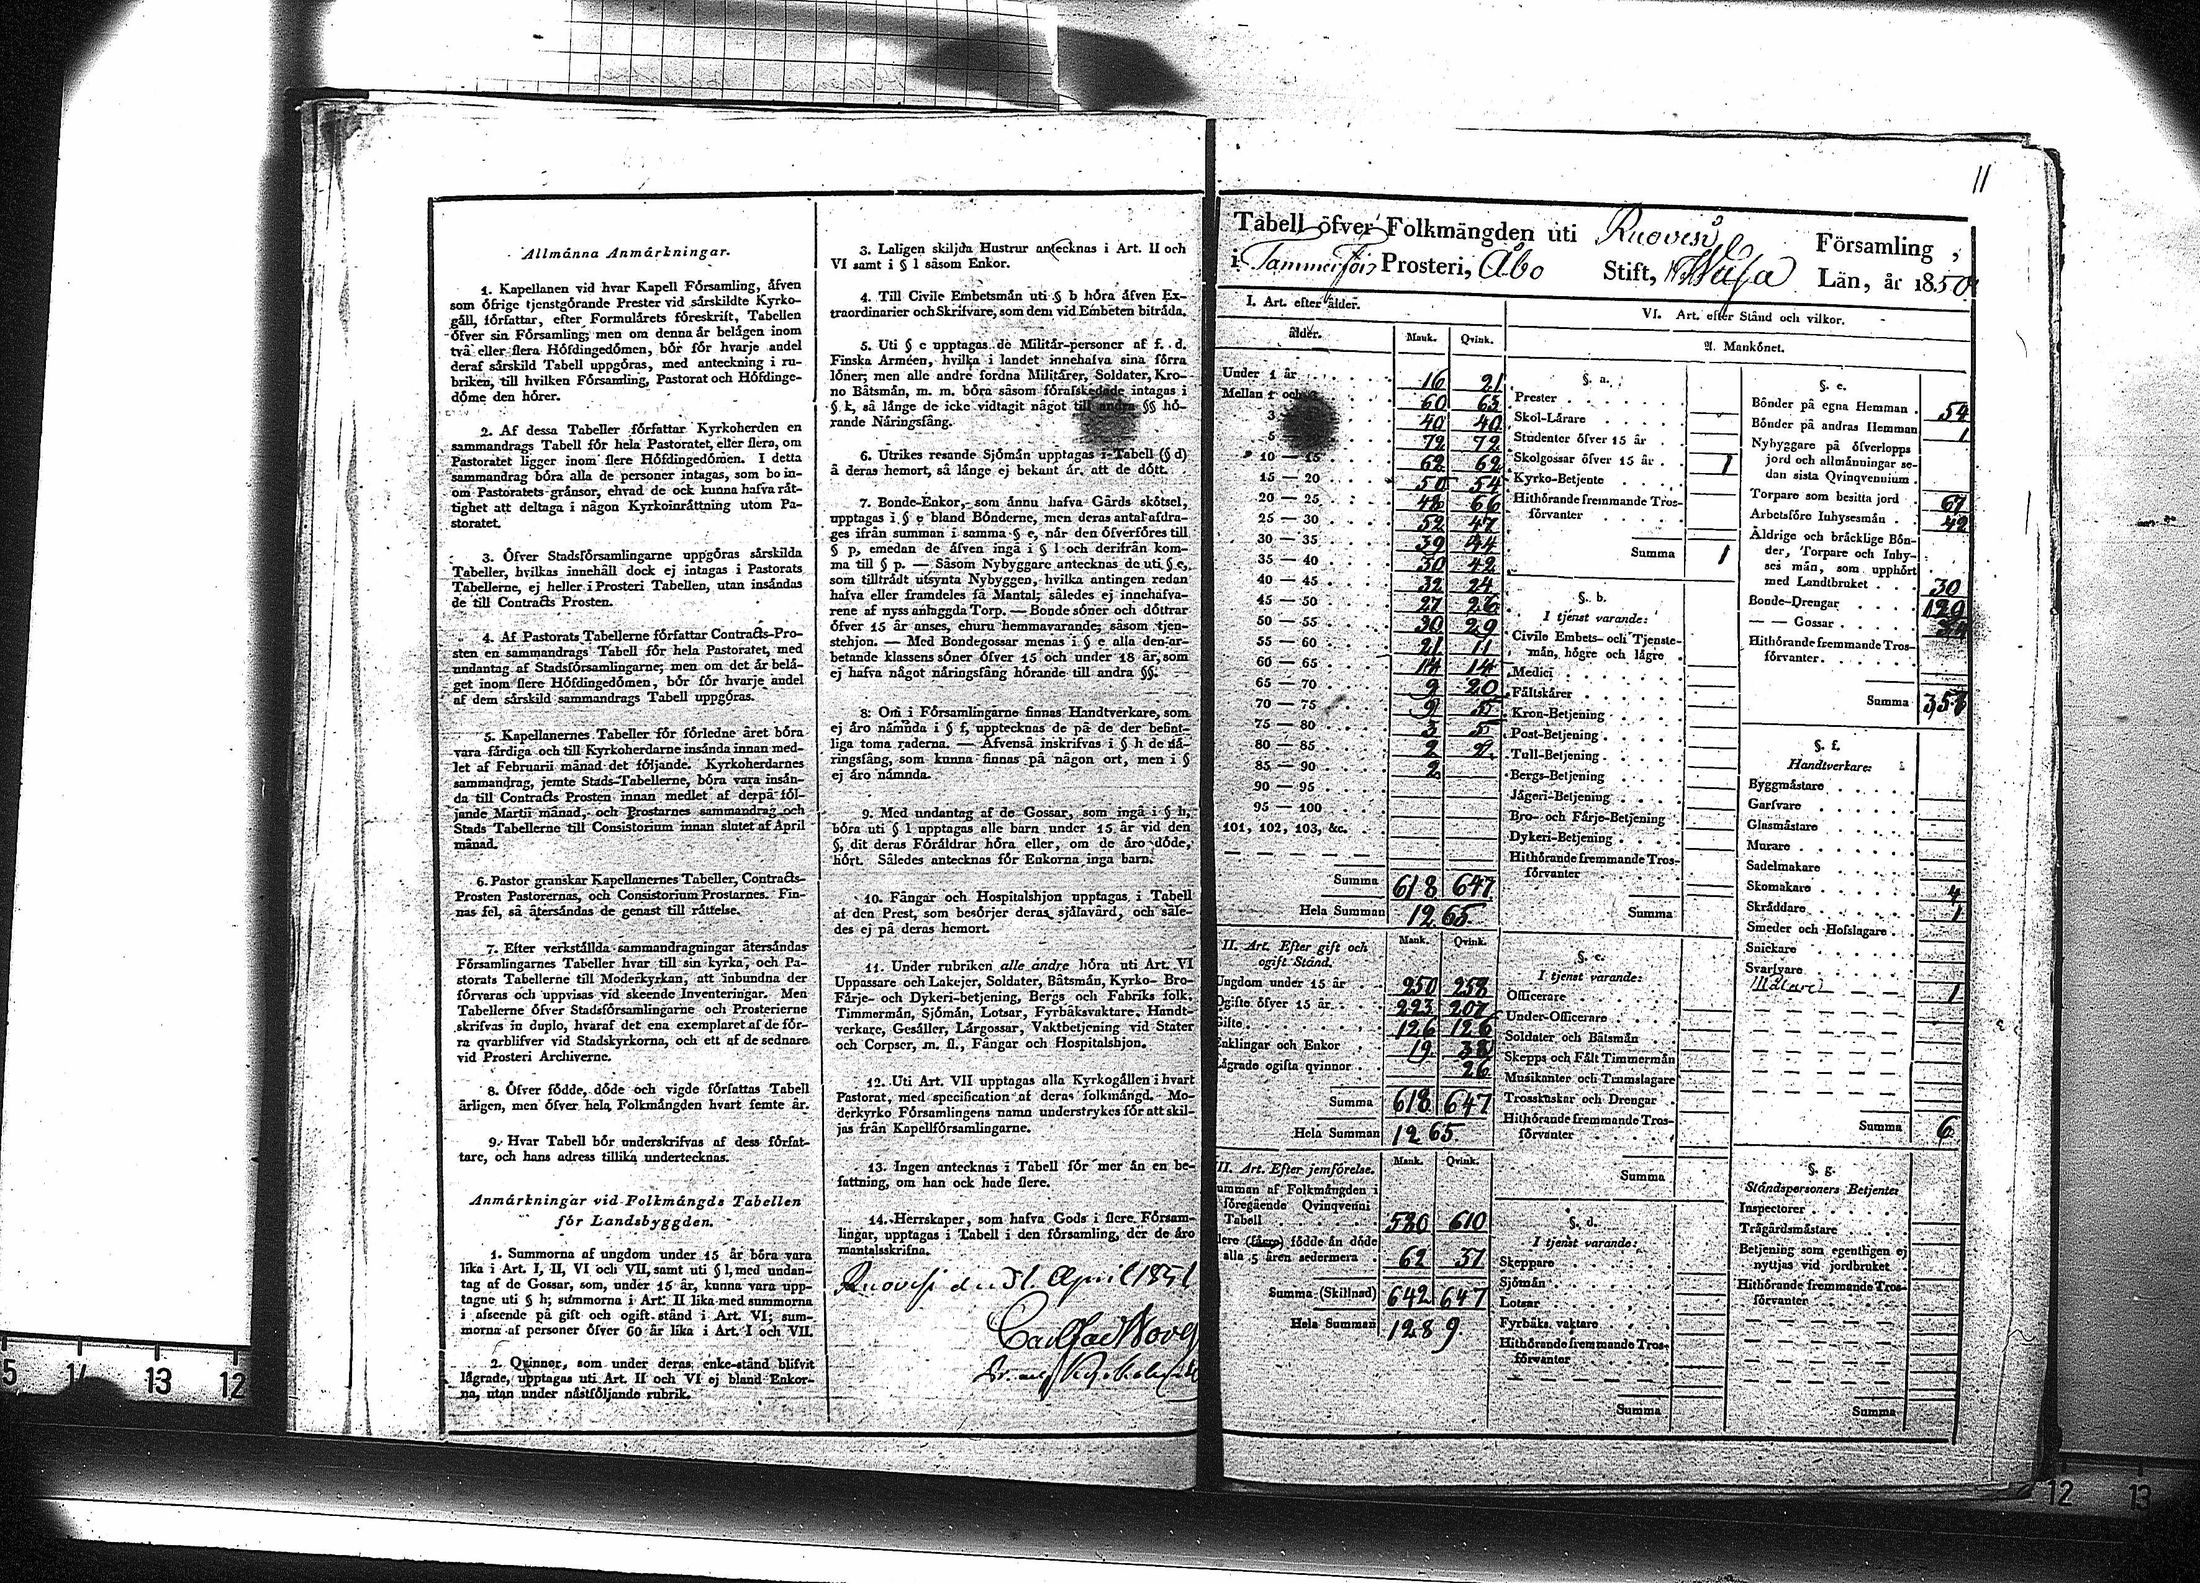 Allmänna Anmärkningar.
1. Kapellanen vid hvar Kapell Församling, äfven
som öfrige tjenstgörande Prester vid särskildte Kyrko-
gäll, författar, efter Formulärets föreskrift, Tabellen
öfver sin Församling; men om denna är belägen inom
två eller flera Höfdingedömen, bör för hvarje andel
deraf särskild Tabell uppgöras, med anteckning i ru-
briken, till hvilken Församling, Pastorat och Höfdinge-
döme den hörer.
2. Af dessa Tabeller författar Kyrkoherden en
sammandrags Tabell för hela Pastoratet, eller flera, om
Pastoratet ligger inom flere Höfdingedömen. I detta
sammandrag böra alla de personer intagas, som bo in-
om Pastoratets gränsor, ehvad de ock kunna hafva rät-
tighet att deltaga i någon Kyrkoinrättning utom Pa-
storatet.
3. Öfver Stadsförsamlingarne uppgöras särskilda
Tabeller, hvilkas innehåll dock ej intagas i Pastorats
Tabellerne, ej heller i Prosteri Tabellen, utan insändas
de till Contracts Prosten.
4. Af Pastorats Tabellerne författar Contracts-Pro-
sten en sammandrags Tabell för hela Pastoratet, med
undantag af Stadsförsamlingarne; men om det är belä-
get inom flere Höfdingedömen, bör för hvarje andel
af dem särskild sammandrags Tabell uppgöras.
5. Kapellanernes Tabeller för förledne året böra
vara färdiga och till Kyrkoherdarne insända innan med-
let af Februarii månad det följande. Kyrkoherdarnes
sammandrag, jemte Stads-Tabellerne, böra vara insän-
da till Contracts Prosten innan medlet af derpå föl-
jande Martii månad, och Prostarnes sammandrag och
Stads Tabellerne till Consistorium innan slutet af April
månad.
6. Pastor granskar Kapellanernes Tabeller, Contracts-
Prosten Pastorernas, och Consistorium Prostarnes. Fin-
nas fel, så återsändas de genast till rättelse.
7. Efter verkställda sammandragningar återsändas
Församlingarnes Tabeller hvar till sin kyrka, och Pa-
storats Tabellerne till Moderkyrkan, att inbundna der
förvaras och uppvisas vid skeende Inventeringar. Men
Tabellerne öfver Stadsförsamlingarne och Prosterierne
skrifvas in duplo, hvaraf det ena exemplaret af de för-
ra qvarblifver vid Stadskyrkorna, och ett af de sednare
vid Prosteri Archiverne.
8. Öfver födde, döde och vigde författas Tabell
ärligen, men öfver hela Folkmängden hvart femte år.
9. Hvar Tabell bör underskrifvas af dess förfat-
tare, och hans adress tillika undertecknas.
Anmärkningar vid Folkmängds Tabellen
för Landsbyggden.
1. Summorna af ungdom under 15 år böra vara
lika i Art. I, II, VI och VII, samt uti § l, med undan-
tag af de Gossar, som, under 15 år, kunna vara upp-
tagne uti § h; summorna i Art. II lika med summorna
i afseende på gift och ogift stånd i Art. VI; sum-
morna af personer öfver 60 år lika i Art. I och VII.
2. Qvinnor, som under deras enke-stånd blifvit
lägrade, upptagas uti Art. II och VI ej bland Enkor-
na, utan under nästföljande rubrik.
3. Laligen skiljda Hustrur antecknas i Art. II och
VI samt i § l såsom Enkor.
4. Till Civile Embetsmän uti § b höra äfven Ex-
traordinarier och Skrifvare, som dem vid Embeten biträda.
5. Uti § c upptagas de Militär-personer af f. d.
Finska Arméen, hvilka i landet innehafva sina förra
löner; men alle andre fordna Militärer, Soldater, Kro-
no Båtsmän, m. m. böra såsom förafskedade intagas i
§ k, så länge de icke vidtagit något till andra §§ hö-
rande Näringsfång.
6. Utrikes resande Sjömän upptagas i Tabell (§ d)
å deras hemort, så länge ej bekant är, att de dött.
7. Bonde-Enkor, som ännu hafva Gårds skötsel,
upptagas i § e bland Bönderne, men deras antal afdra-
ges ifrån summan i samma § e, när den öfverföres till
§ p, emedan de äfven ingå i § l och derifrån kom-
ma till § p. — Såsom Nybyggare antecknas de uti § e,
som tillträdt utsynta Nybyggen, hvilka antingen redan
hafva eller framdeles få Mantal; således ej innehafva-
rene af nyss anlaggda Torp. — Bonde söner och döttrar
öfver 15 år anses, ehuru hemmavarande, såsom tjen-
stehjon. — Med Bondegossar menas i § e alla den ar-
betande klassens söner öfver 15 och under 18 år, som
ej hafva något näringsfång hörande till andra §§.
8. Om i Församlingarne finnas Handtverkare, som
ej äro nämnda i § f, upptecknas de på de der befint-
liga toma raderna. — Äfvenså inskrifvas i § h de nä-
ringsfång, som kunna finnas på någon ort, men i §
ej äro nämnda.
9. Med undantag af de Gossar, som ingå i § h,
böra uti § l upptagas alle barn under 15 år vid den
§, dit deras Föräldrar höra eller, om de äro döde,
hört. Således antecknas för Enkorna inga barn.
10. Fångar och Hospitalshjon upptagas i Tabell
af den Prest, som besörjer deras själavård, och såle-
des ej på deras hemort.
11. Under rubriken alle andre höra uti Art. VI
Uppassare och Lakejer, Soldater, Båtsmän, Kyrko- Bro-
Färje- och Dykeri-betjening, Bergs och Fabriks folk,
Timmermän, Sjömän, Lotsar, Fyrbåksvaktare, Handt-
verkare, Gesäller, Lärgossar, Vaktbetjening vid Stater
och Corpser, m. fl., Fångar och Hospitalshjon.
12. Uti Art. VII upptagas alla Kyrkogällen i hvart
Pastorat, med specification af deras folkmängd. Mo-
derkyrko Församlingens namn understrykes för att skil-
jas från Kapellförsamlingarne.
13. Ingen antecknas i Tabell för mer än en be-
fattning, om han ock hade flere.
14. Herrskaper, som hafva Gods i flere Försam-
lingar, upptagas i Tabell i den församling, der de äro
mantalsskrifna.
Ruovesi den 31. April 1851
11
Tabell öfver Folkmängden uti Ruovesi Församling,
i Tammerfors Prosteri, Åbo Stift, Wasa Län, år 1850
I. Art. efter ålder.
ålder. Mank. Qvink.
Under 1 år 16 21
Mellan 1 och 3 60 65
3 40 40
5 72 72
10 — 15 62 62
15 — 20 50 54
20 — 25 48 66
25 — 30 52 47
30 — 35 39 44
35 — 40 30 42
40 — 45 32 24
45 — 50 27 26
50 — 55 30 29
55 — 60 21 11
60 — 65 14 14
65 — 70 9 20
70 — 75 9 5
75 — 80 3 5
80 — 85 2
85 — 90 2
90 — 95
95 — 100
101, 102, 103, &c.
Summa 618 647
Hela Summan 1265
II. Art. Efter gift och
ogift Stånd. Mank. Qvink.
Ungdom under 15 år 250 258
Ogifte öfver 15 år 223 207
Gifte 126 126
Enklingar och Enkor 19 38
Lägrade ogifta qvinnor 26
Summa 618 647
Hela Summan 1265
II. Art. Efter jemförelse. Mank. Qvink.
umman af Folkmängden i
föregående Qvinqvenni
Tabell 580 610
lere (färre) födde än döde
alla 5 åren sedermera 62 37
Summa (Skillnad) 642 647
Hela Summan 1289.
VI. Art. efter Stånd och vilkor.
A. Mankönet.
§. a.
Prester
Skol-Lärare
Studenter öfver 15 år
Skolgossar öfver 15 år 1
Kyrko-Betjente
Hithörande fremmande Tros-
förvanter
Summa 1
§. b.
I tjenst varande:
Civile Embets- och Tjenste-
män, högre och lägre
Medici
Fältskärer
Kron-Betjening
Post-Betjening
Tull-Betjening
Bergs-Betjening
Jägeri-Betjening
Bro- och Färje-Betjening
Dykeri-Betjening
Hithörande fremmande Tros-
förvanter
Summa
§. c.
I tjenst varande:
Officerare
Under-Officerare
Soldater och Båtsmän
Skepps och Fält Timmermän
Musikanter och Trumslagare
Trosskuskar och Drengar
Hithörande fremmande Tros-
förvanter
Summa
§. d.
I tjenst varande:
Skeppare
Sjömän
Lotsar
Fyrbåks vaktare
Hithörande fremmande Tros-
förvanter
Summa
§. e.
Bönder på egna Hemman 54
Bönder på andras Hemman 1
Nybyggare på öfverlopps
jord och allmänningar se-
dan sista Qvinqvennium
Torpare som besitta jord 67
Arbetsföre Inhysesmän 42
Åldrige och bräcklige Bön-
der, Torpare och Inhy-
ses män, som upphört
med Landtbruket 30
Bonde-Drengar 129
— — Gossar
Hithörande fremmande Tros-
förvanter
Summa
§. f.
Handtverkare:
Byggmästare
Garfvare
Glasmästare
Murare
Sadelmakare
Skomakare 4
Skräddare 1
Smeder och Hofslagare
Snickare
Svarfvare
Målare 1
Summa 6
§. g.
Ståndspersoners Betjente:
Inspectorer
Trägårdsmästare
Betjening som egentligen ej
nyttjas vid jordbruket
Hithörande fremmande Tros-
förvanter
Summa
5 14 13 12
12 13